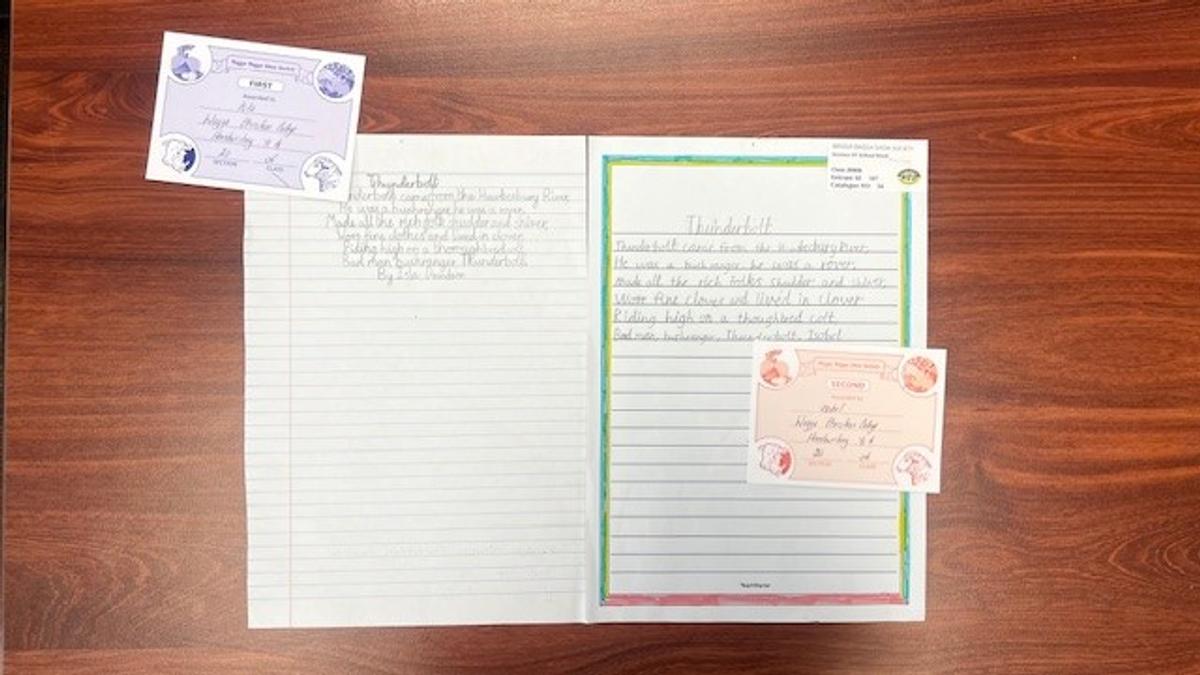 Wagga Wagga Show Society
FIRST
Awarded to
Wagga Christian College
Handwriting Y 4
20 04
SECTION CLASS
Thunderbolt
Thunderbolt came from the Hawkesbury River
He was a bushranger he was a rover
Made all the rich folk shudder and shiver
Wore fine clothes and lived in clover
Riding high on a thoroughbred colt
Bad man bushranger Thunderbolt
By Isla
WAGGA WAGGA SHOW SOCIETY
Section 20 School Work
Class
Entrant ID 107
Catalogue NO 34
Thunderbolt
Thunderbolt came from the River,
He was a bushranger he was a rover,
Made all the rich folks shudder and shiver,
Wore fine and lived in clover
Riding high on a thoughbred colt
Bad man, bushranger, Thunderbolt. Isobel
Wagga Wagga Show Society
SECOND
Awarded to
Wagga Christian College
Handwriting Y 4
20 04
SECTION CLASS